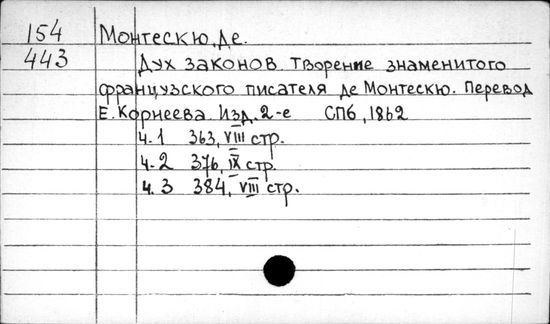 154 Монтескю, де.
443 Дух законов. Творение знаменитого
французского писателя де Монтескю. Перевод
Е. Корнеева. Изд. 2-е СПб, 1862
ч. 1 363, VIII стр.
ч. 2 376, IX стр.
ч. 3 384, VIII стр.